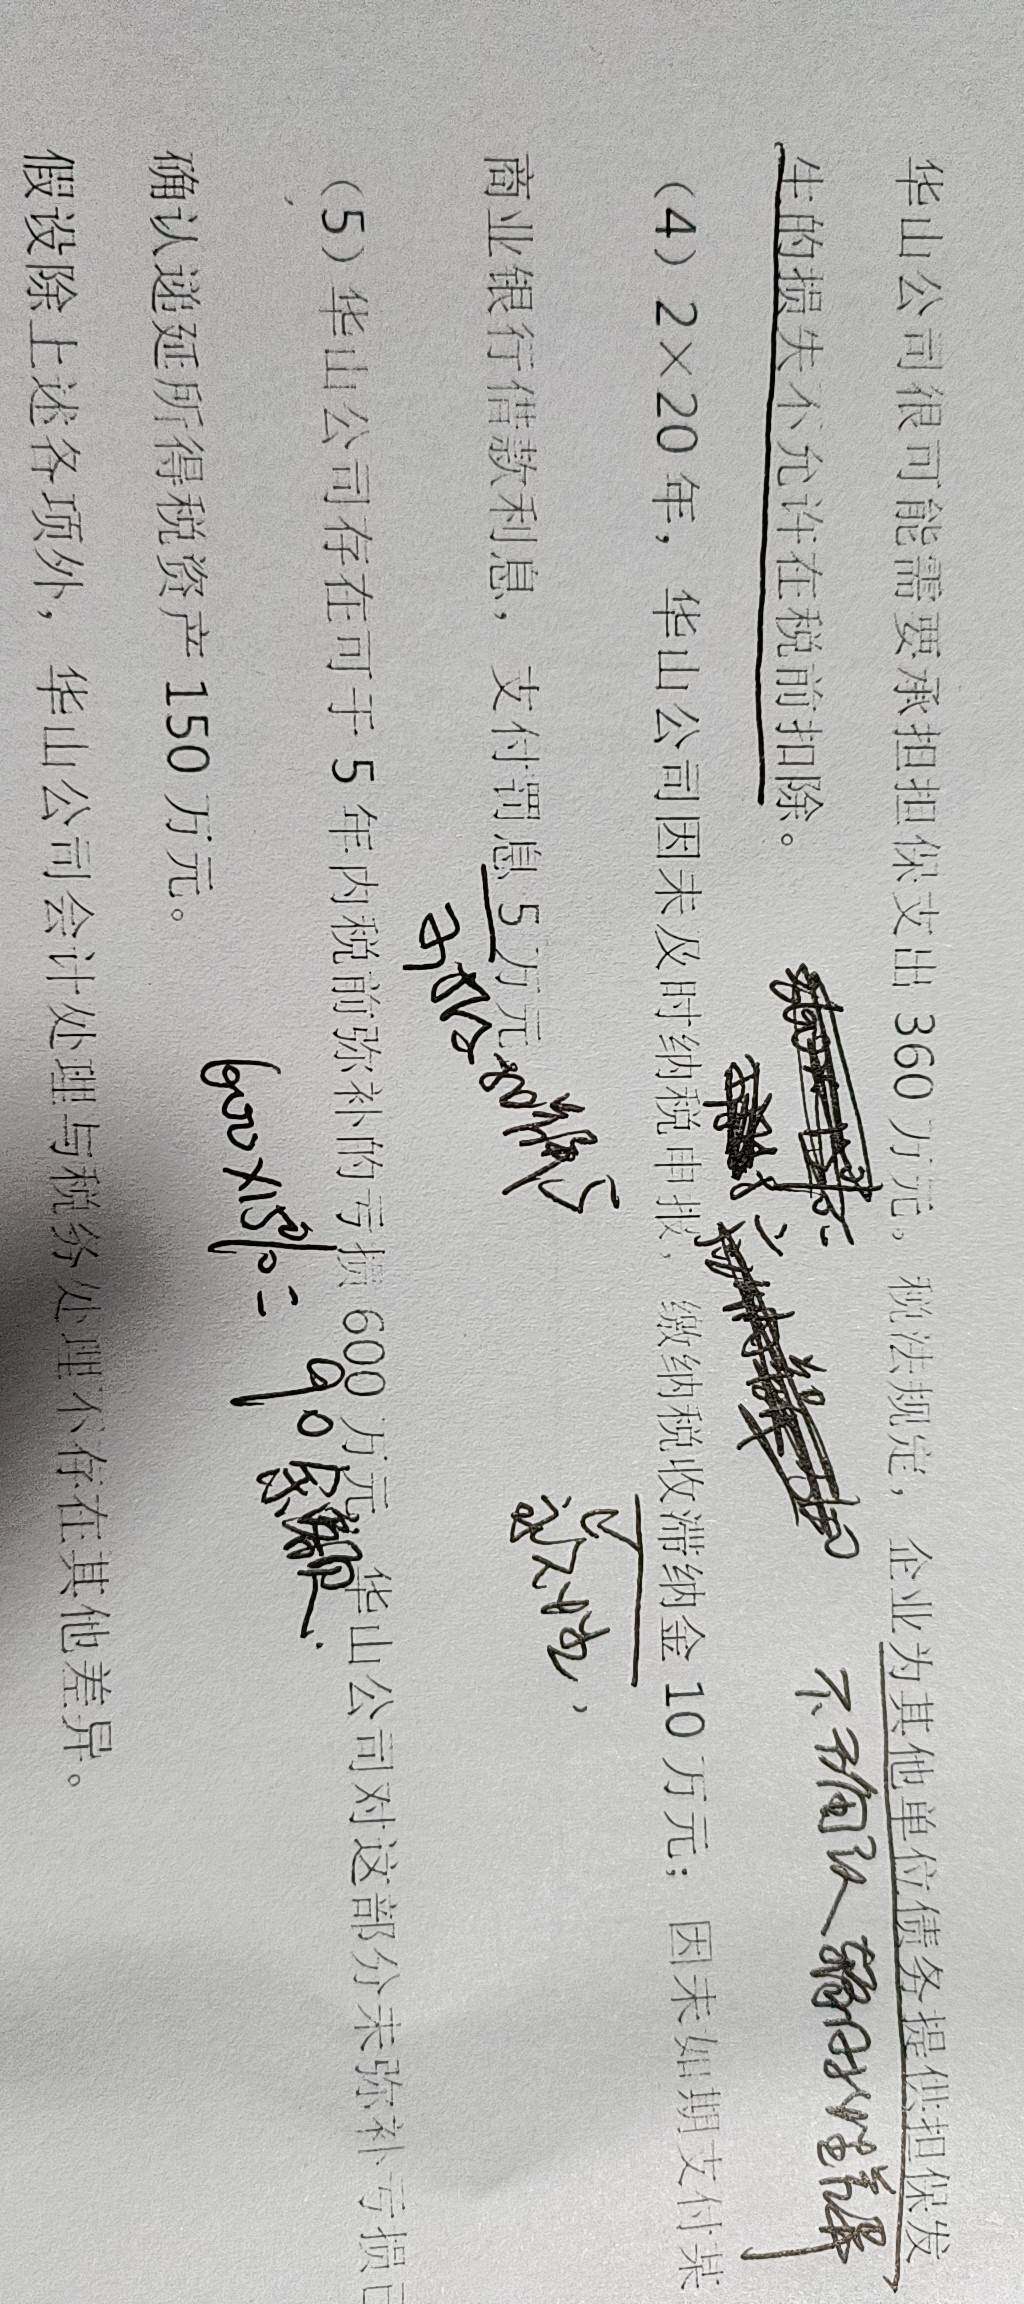 华山公司很可能需要承担担保支出 360 万元。税法规定，企业为其他单位债务提供担保发
生的损失不允许在税前扣除。
不确认
（4）2×20 年，华山公司因未及时纳税申报，缴纳税收滞纳金 10 万元；因未如期支付某
商业银行借款利息，支付罚息 5 万元
（5）华山公司存在可于 5 年内税前弥补的亏损 600 万元，华山公司对这部分未弥补亏损已
600×15%=
90
确认递延所得税资产 150 万元。
假设除上述各项外，华山公司会计处理与税务处理不存在其他差异。